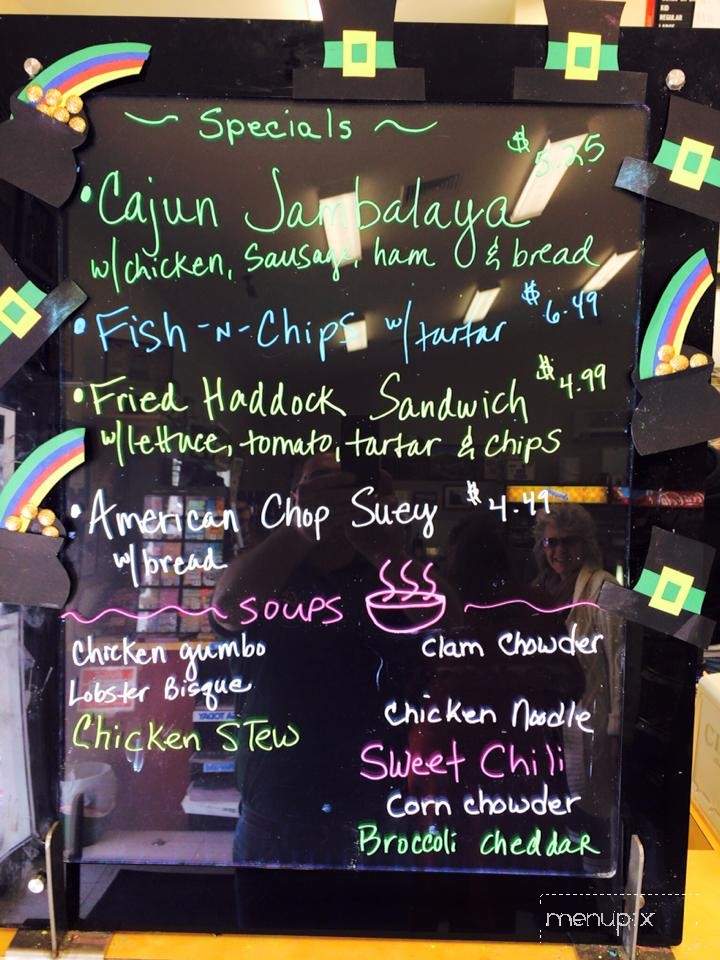 ~ Specials ~
$5.25
• Cajun Jambalaya
w/chicken, Sausage, ham & bread
• Fish -N- Chips w/tartar $6.49
• Fried Haddock Sandwich $4.99
w/lettuce, tomato, tartar & chips
• American Chop Suey $4.49
w/bread
SOUPS
Chicken gumbo
Clam Chowder
Lobster Bisque
Chicken Noodle
Chicken Stew
Sweet Chili
Corn chowder
Broccoli cheddar
menupix
KID
REGULAR